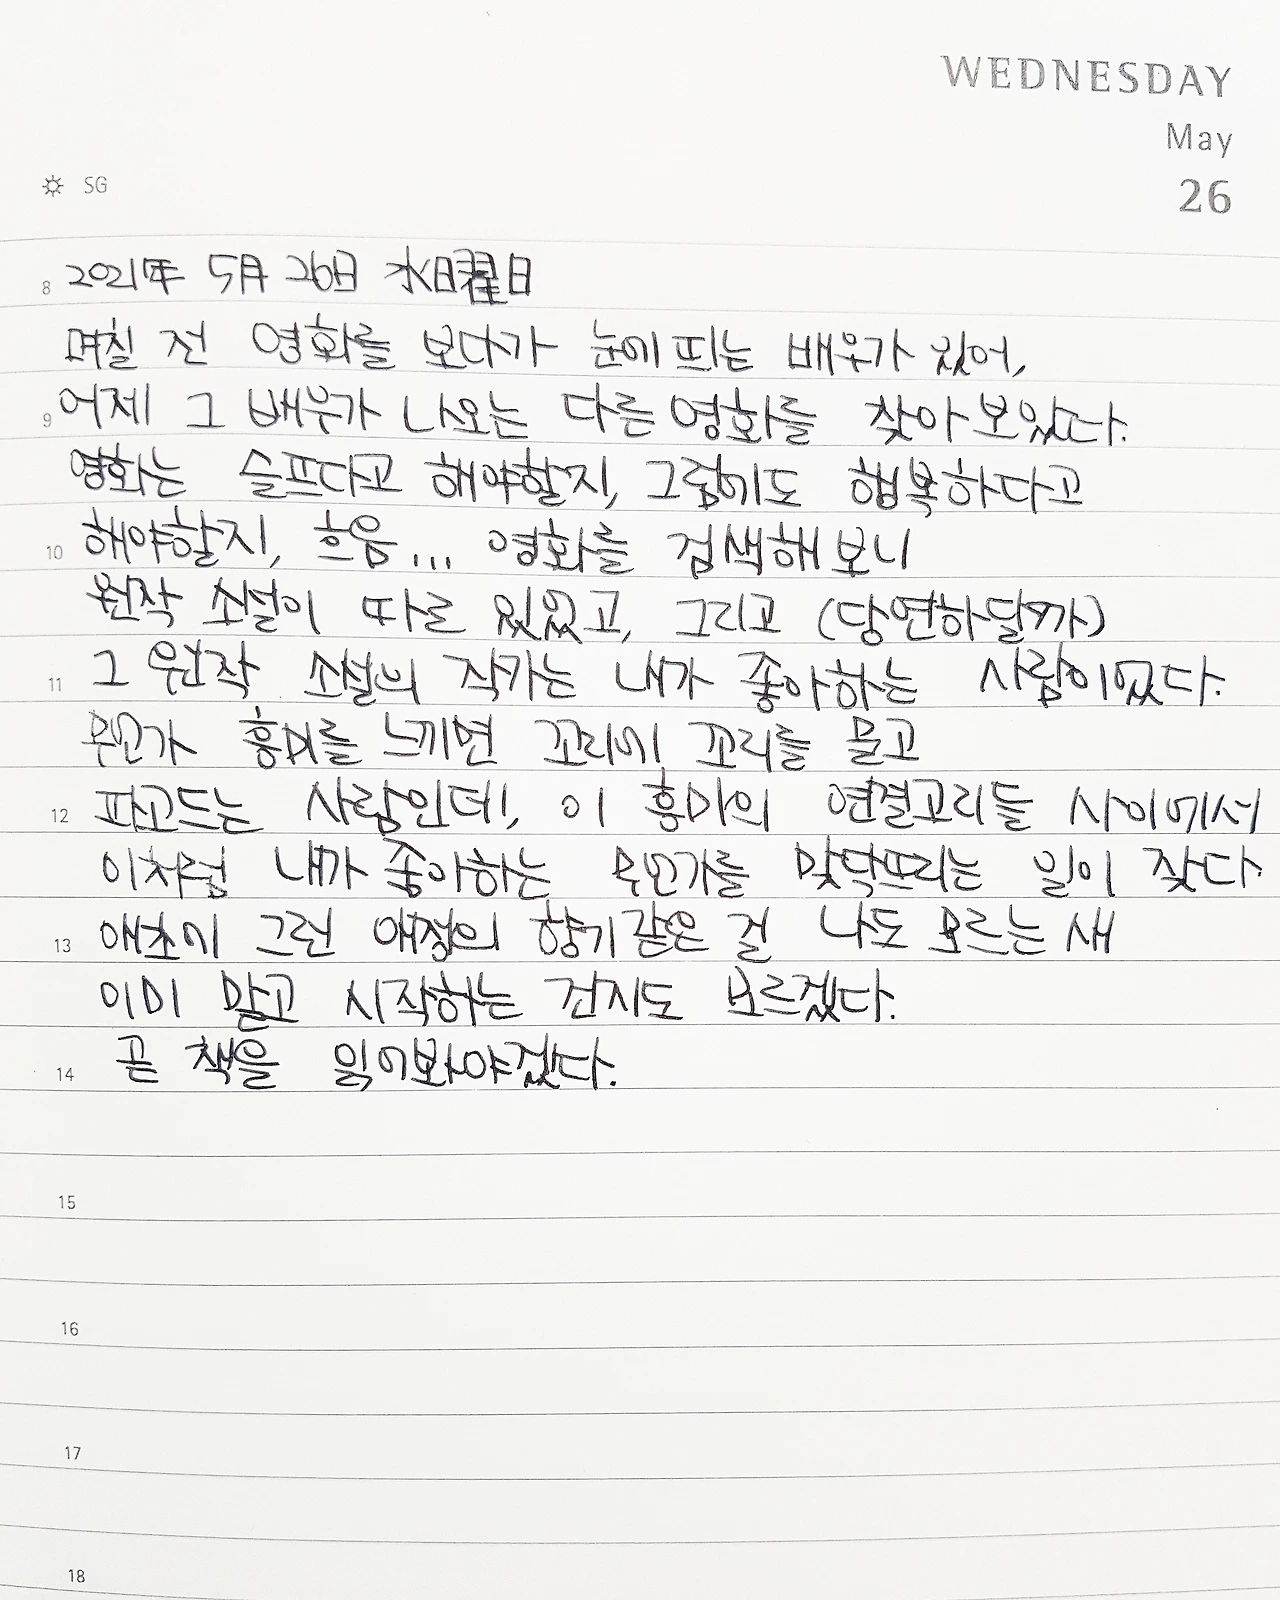 WEDNESDAY
May
26
SG
8 2021年 5月 26日 水曜日
며칠 전 영화를 보다가 눈에 띄는 배우가 있어,
9 어제 그 배우가 나오는 다른 영화를 찾아 보았다.
영화는 슬프다고 해야할지, 그럼에도 행복하다고
10 해야할지, 흐음... 영화를 검색해 보니
원작 소설이 따로 있었고, 그리고 (당연하달까)
11 그 원작 소설의 작가는 내가 좋아하는 사람이었다.
무언가 흥미를 느끼면 꼬리에 꼬리를 물고
12 파고드는 사람인데, 이 흥미의 연결고리들 사이에서
이처럼 내가 좋아하는 무언가를 맞닥뜨리는 일이 잦다.
13 애초에 그런 애정의 향기같은 걸 나도 모르는 새
이미 맡고 시작하는 건지도 모르겠다.
14 곧 책을 읽어봐야겠다.
15
16
17
18